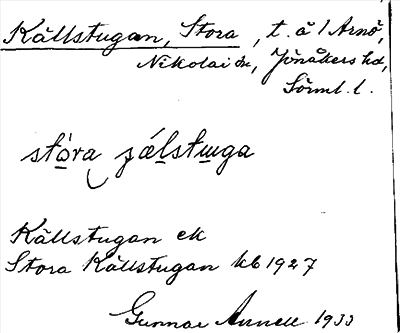 Källstugan, Stora, t. å 1 Arnö,
Nikolai sn, Jönåkers hd,
Sörml. l.
stóra ɟælstuga
Källstugan ek
Stora Källstugan kb 1927
Gunnar Annell 1933